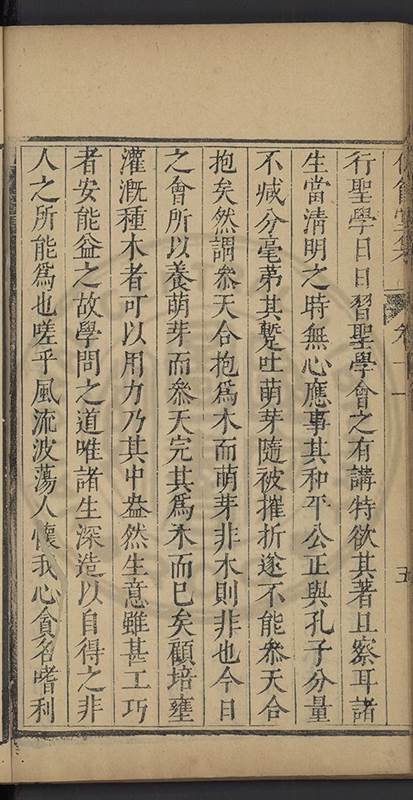 堂集
卷十一
五
行聖學日日習聖學會之有講特欲其著且察耳諸
生當清明之時無心應事其和平公正與孔子分量
不減分毫苐其蹔吐萌芽隨被摧折遂不能叅天合
抱矣然謂叅天合抱爲木而萌芽非木則非也今日
之會所以養萌芽而叅天完其爲木而已矣顧培壅
灌溉種木者可以用力乃其中盎然生意雖甚工巧
者安能益之故學問之道唯諸生深造以自得之非
人之所能爲也嗟乎風流波蕩人懷我心貪名嗜利